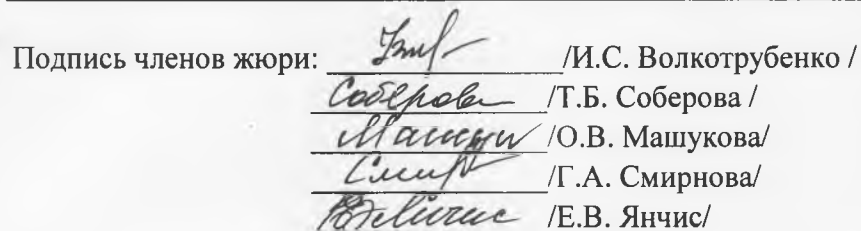 Подпись членов жюри: /И.С. Волкотрубенко /
Соберова /Т.Б. Соберова /
/О.В. Машукова/
/Г.А. Смирнова/
/Е.В. Янчис/